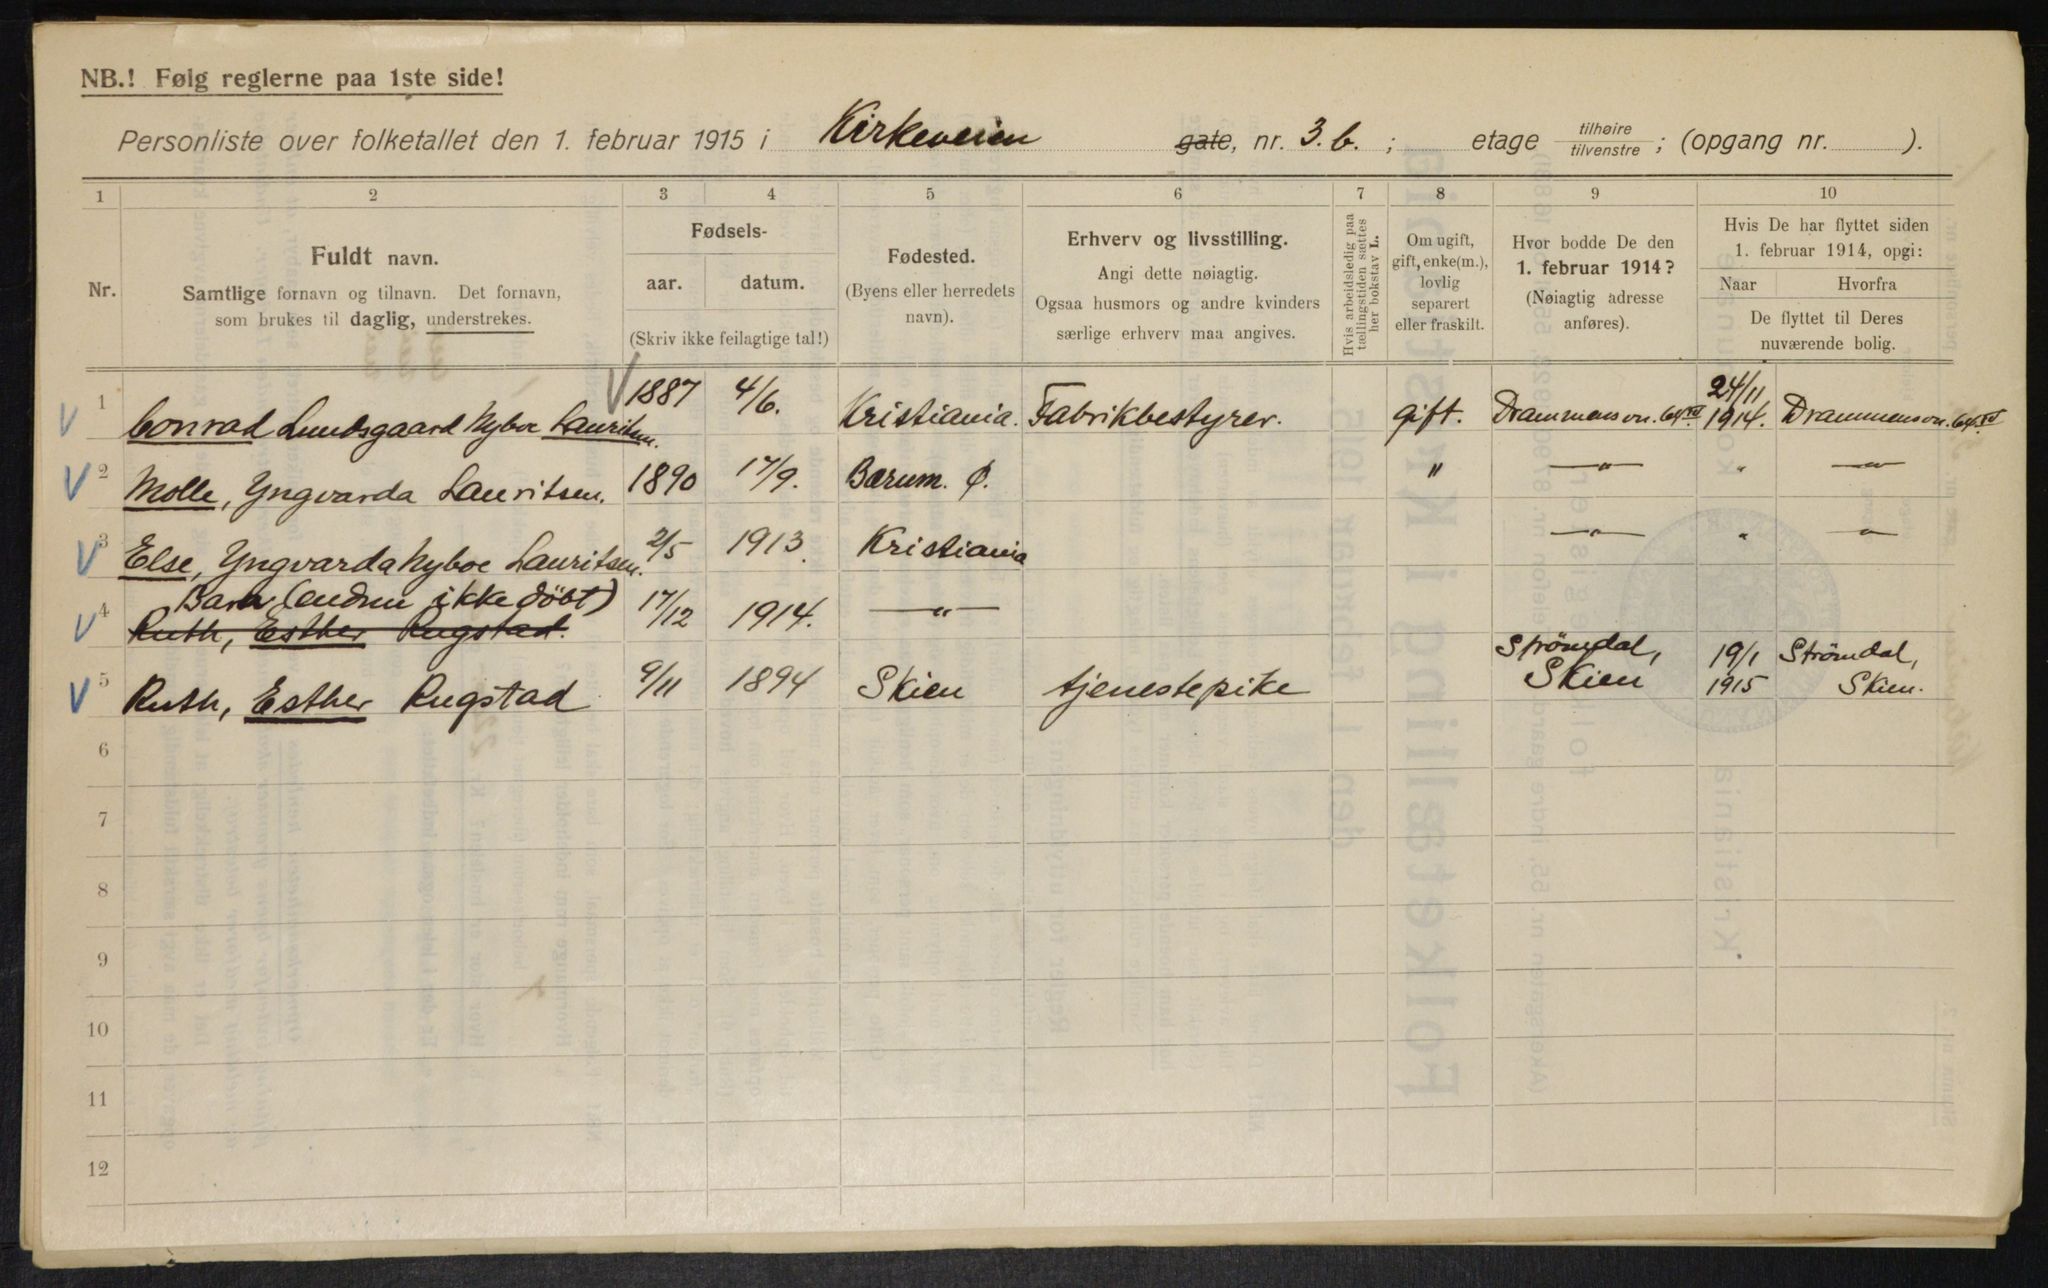 NB.! Følg reglerne paa 1ste side!
Personliste over folketallet den 1. februar 1915 i Kirkeveien gate, nr. 3.b. ; etage tilhøire tilvenstre ; (opgang nr. ).
1 2 3 4 5 6 7 8 9 10
Nr.
Fuldt navn.
Samtlige fornavn og tilnavn. Det fornavn,
som brukes til daglig, understrekes.
Fødsels-
aar. datum.
(Skriv ikke feilagtige tal!)
Fødested.
(Byens eller herredets
navn).
Erhverv og livsstilling.
Angi dette nøiagtig.
Ogsaa husmors og andre kvinders
særlige erhverv maa angives.
Hvis arbeidsledig paa
tællingstiden sættes
her bokstav L.
Om ugift,
gift, enke(m.),
lovlig
separert
eller fraskilt.
Hvor bodde De den
1. februar 1914?
(Nøiagtig adresse
anføres).
Hvis De har flyttet siden
1. februar 1914, opgi:
Naar Hvorfra
De flyttet til Deres
nuværende bolig.
1 Conrad Lundsgaard Nyboe Lauritsen. 1887 4/6. Kristiania. Fabrikbestyrer. gift. Drammensvn. 64 24/11 1914. Drammensvn. 64
2 Molle, Yngvarda Lauritsen. 1890 17/9. Bærum. Ø. " —"— " —"—
3 Else, Yngvarda Nyboe Lauritsen. 2/5 1913. Kristiania —"— " —"—
Barn (endnu ikke døbt)
4 Ruth, Esther Rugstad. 17/12 1914. —"—
5 Ruth, Esther Rugstad 9/11 1894 Skien tjenestepike Strömdal, Skien 19/1 1915 Strömdal, Skien.
6
7
8
9
10
11
12